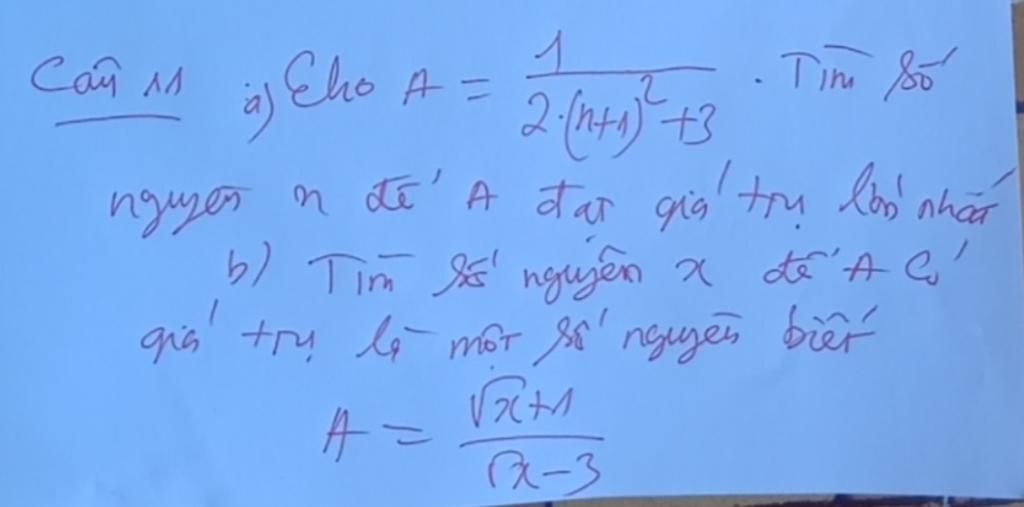 Câu 11 a) Cho A = 1/(2.(n+1)²+3) . Tìm số
nguyên n để A đạt giá trị lớn nhất
b) Tìm số nguyên x để A có
giá trị là một số nguyên biết
A = (√x+1)/(√x-3)